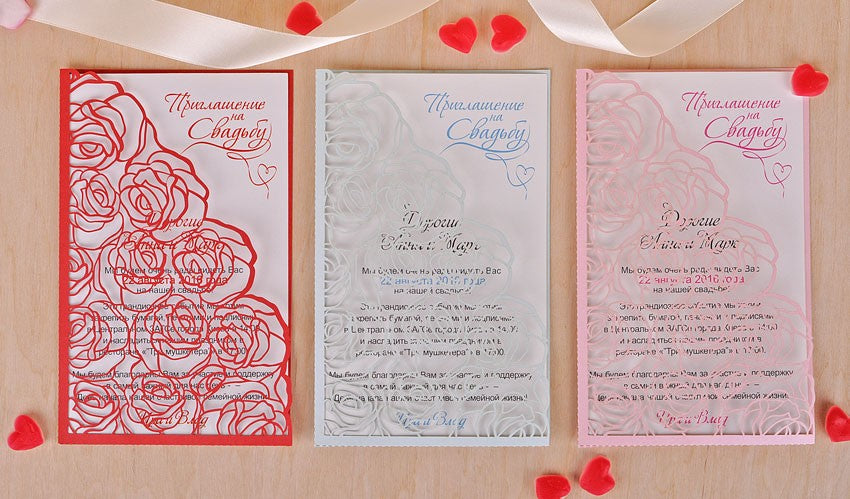 Приглашение
на
Свадьбу
Дорогие
Анна и Марк
Мы будем очень рады видеть Вас
22 августа 2016 года
на нашей свадьбе!
Это грандиозное событие мы хотим
закрепить бумагой, печатями и подписями
в Центральном ЗАГСе города Киева в 14.00
и насладиться нашим праздником в
ресторане «Три мушкетера» в 17.00.
Мы будем благодарны Вам за участие и поддержку
в самый важный для нас день –
День начала нашей счастливой семейной жизни!
Ира и Влад
Приглашение
на
Свадьбу
Дорогие
Анна и Марк
Мы будем очень рады видеть Вас
22 августа 2016 года
на нашей свадьбе!
Это грандиозное событие мы хотим
закрепить бумагой, печатями и подписями
в Центральном ЗАГСе города Киева в 14.00
и насладиться нашим праздником в
ресторане «Три мушкетера» в 17.00.
Мы будем благодарны Вам за участие и поддержку
в самый важный для нас день –
День начала нашей счастливой семейной жизни!
Ира и Влад
Приглашение
на
Свадьбу
Дорогие
Анна и Марк
Мы будем очень рады видеть Вас
22 августа 2016 года
на нашей свадьбе!
Это грандиозное событие мы хотим
закрепить бумагой, печатями и подписями
в Центральном ЗАГСе города Киева в 14.00
и насладиться нашим праздником в
ресторане «Три мушкетера» в 17.00.
Мы будем благодарны Вам за участие и поддержку
в самый важный для нас день –
День начала нашей счастливой семейной жизни!
Ира и Влад